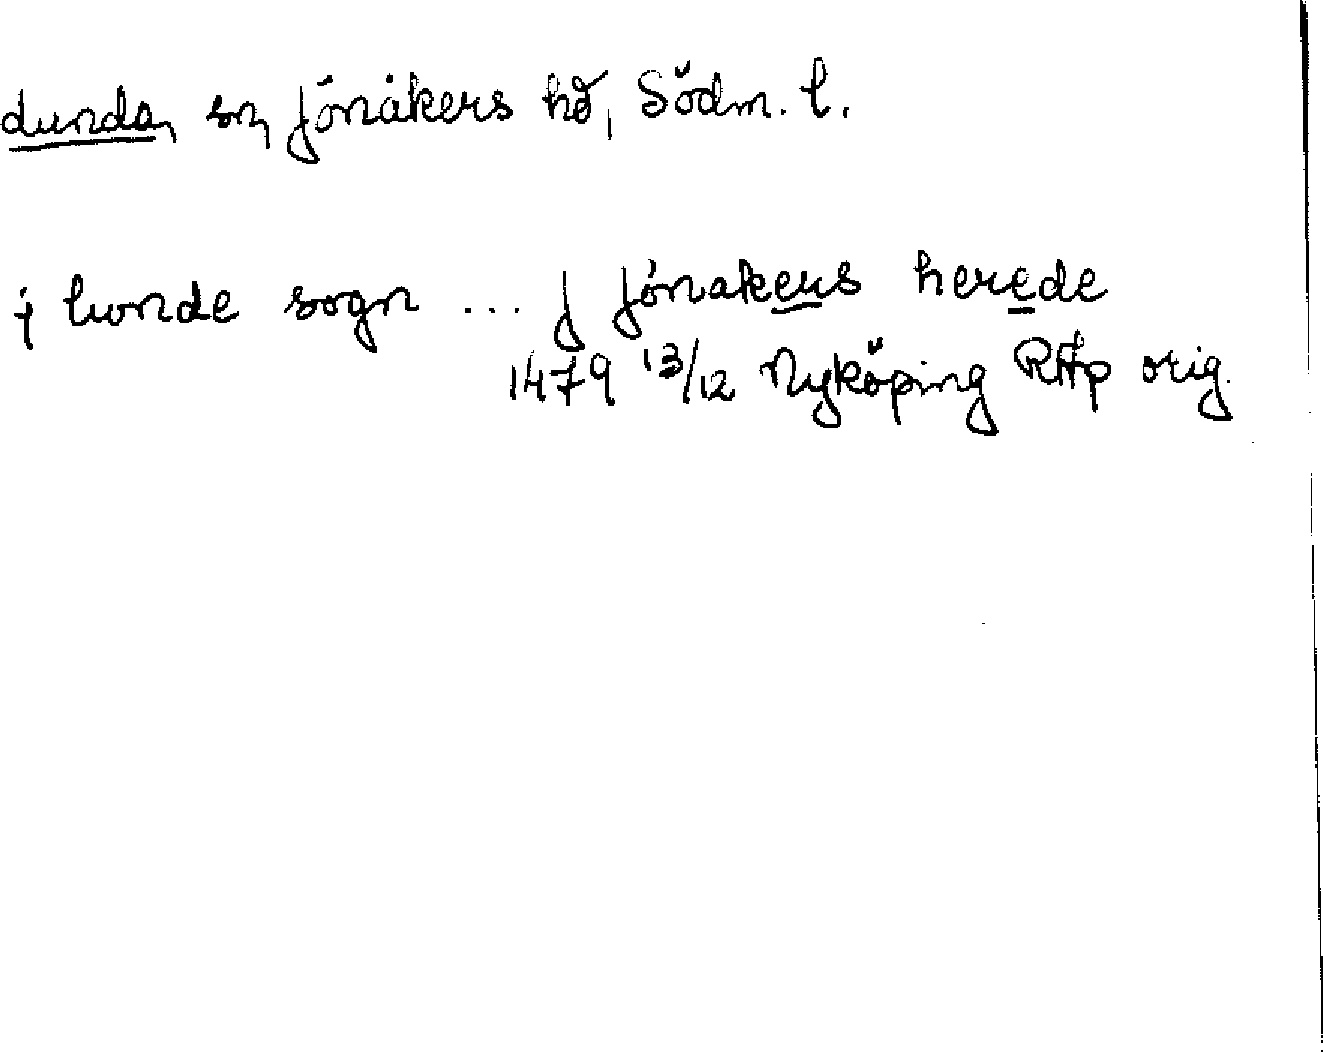 Lunda, sn, Jönåkers hd, Södm. l.
j lunde sogn ... J Jönakers herede
1479 13/12 Nyköping RAp orig.